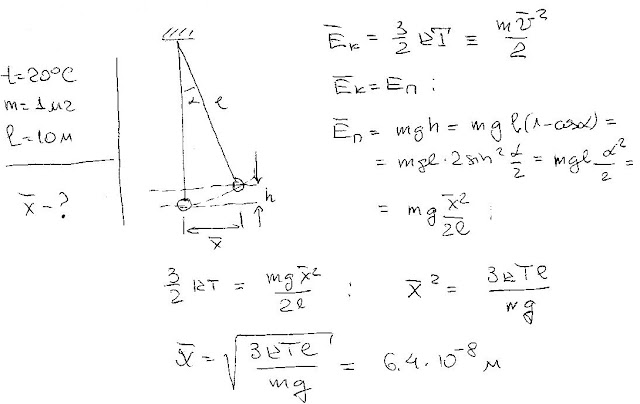 t=20°C
m=1мг
l=10м
x̄ - ?
α
l
h
x̄
Ēк = 3/2 kT ≡ mv̄²/2
Ēк = Eп ;
Ēп = mgh = mg l(1-cosα) =
= mgl·2sin² α/2 = mgl α²/2 =
= mg x̄²/2l ;
3/2 kT = mgx̄²/2l ; x̄² = 3kTl/mg
x̄ = √(3kTl/mg) = 6.4·10⁻⁸ м